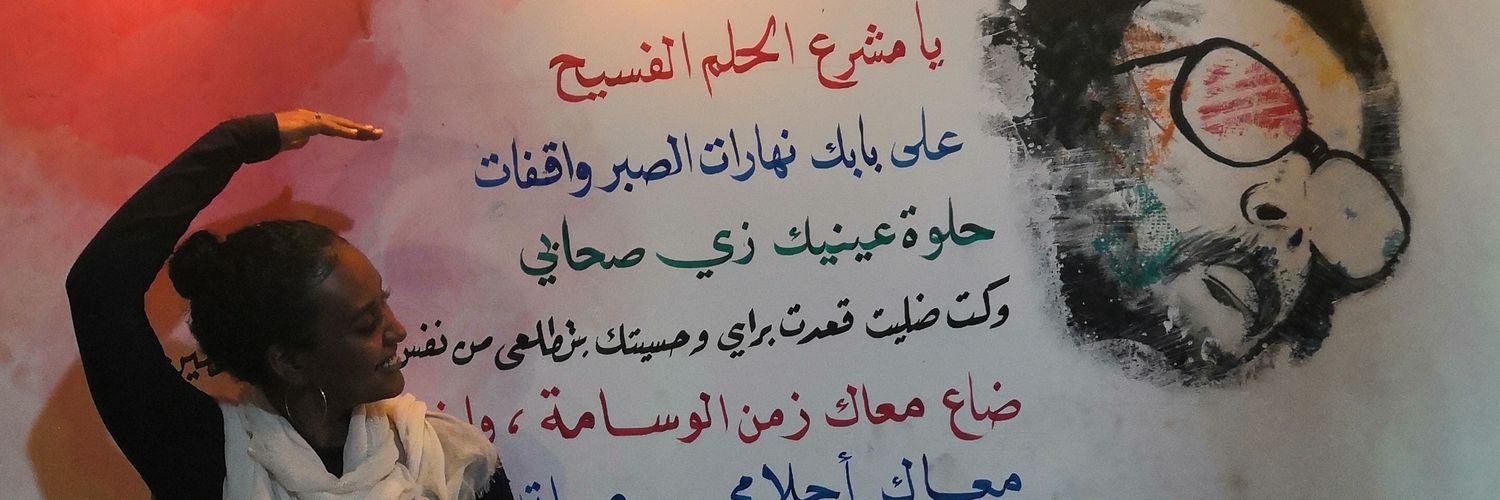 يا مشرع الحلم الفسيح
على بابك نهارات الصبر واقفات
حلوة عينيك زي صحابي
وكت ضليت قعدت براي وحسيتك بتطلعى من نفس
ضاع معاك زمن الوسامة ،
معاك أحلامي